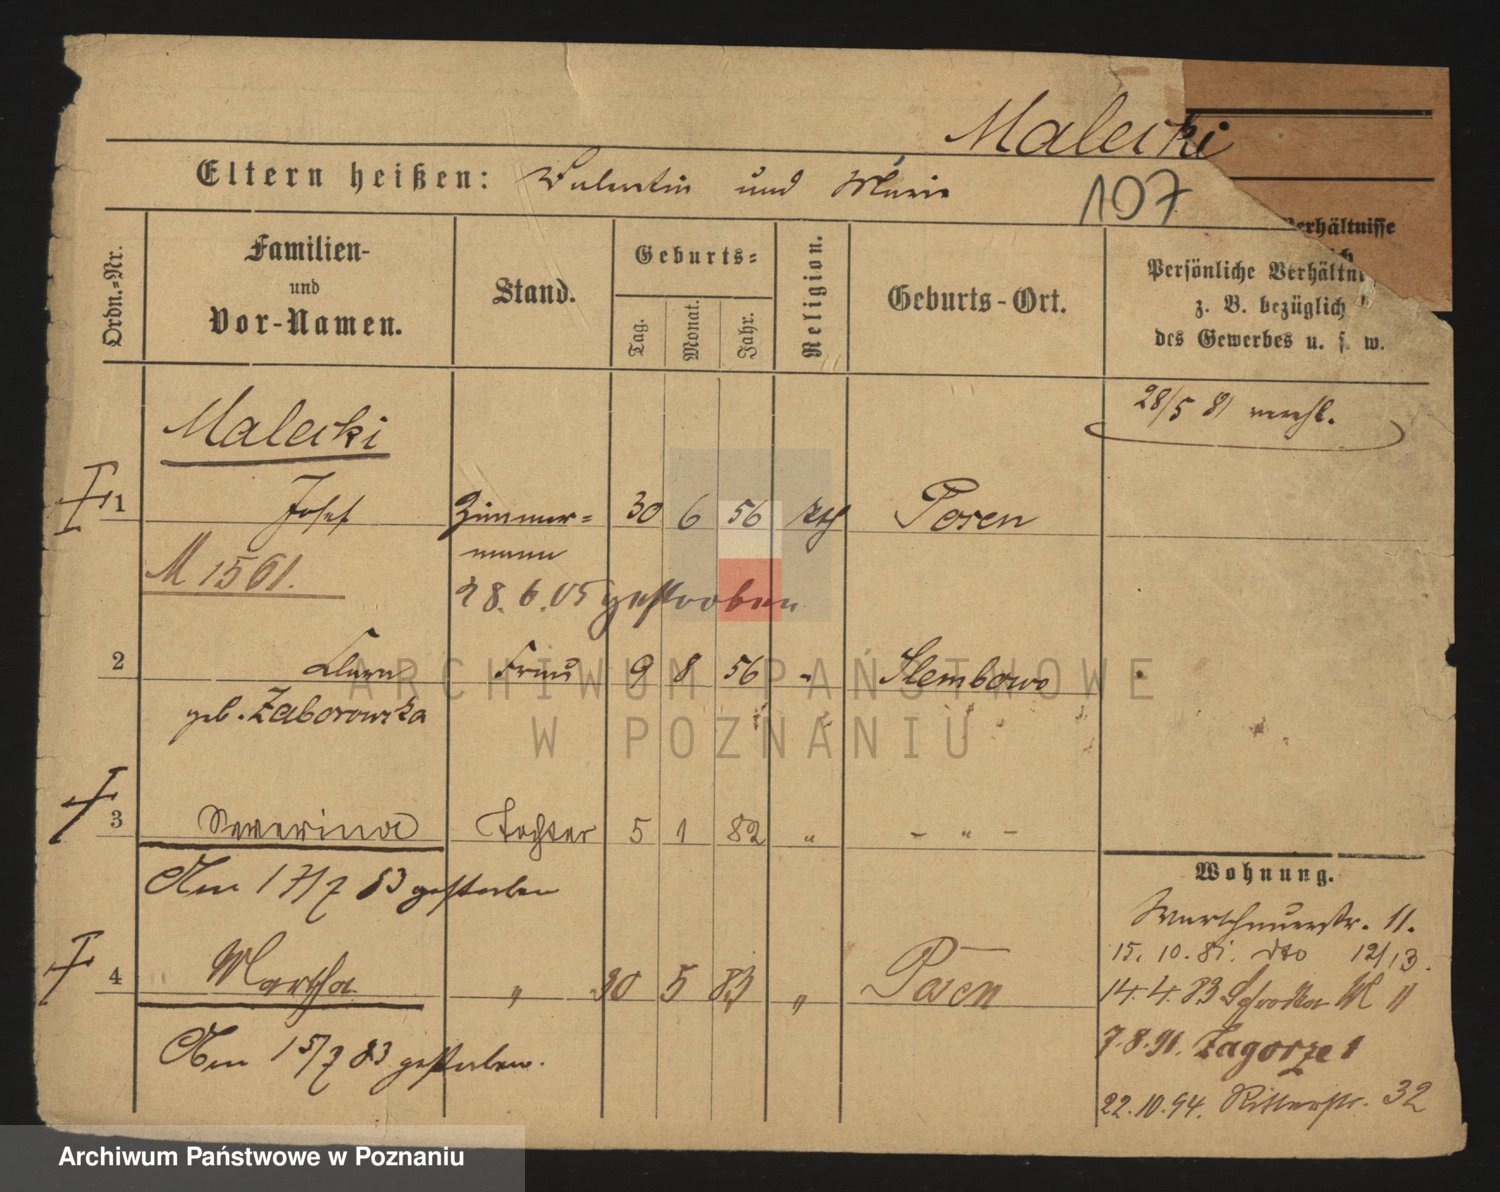 Malecki
Eltern heißen: Valentin und Marie
107
Verhältnisse
Ordn.-Nr.
Familien-
und
Vor-Namen.
Stand.
Geburts-
Tag.
Monat.
Jahr.
Religion.
Geburts-Ort.
Persönliche Verhältni
z. B. bezüglich
des Gewerbes u. s. w.
28/5 81 verehl.
Malecki
1 Josef Zimmer= 30 6 56 kth Posen
mann
M 1561.
28.6.05 gestorben
2 Clara Frau 9 8 56 " Slembowo
geb. Zaborowska
3 Severina Tochter 5 1 82 " - " -
Am 17/7 83 gestorben
4 Martha " 30 5 83 " Posen
Am 15/7 83 gestorben.
Wohnung.
Warschauerstr. 11.
15. 10. 81. dto 12/13.
14.4.83 Schrodka M 11
7.8.91. Zagorze 1
22.10.94. Ritterstr. 32
ARCHIWUM PAŃSTWOWE
W POZNANIU
Archiwum Państwowe w Poznaniu